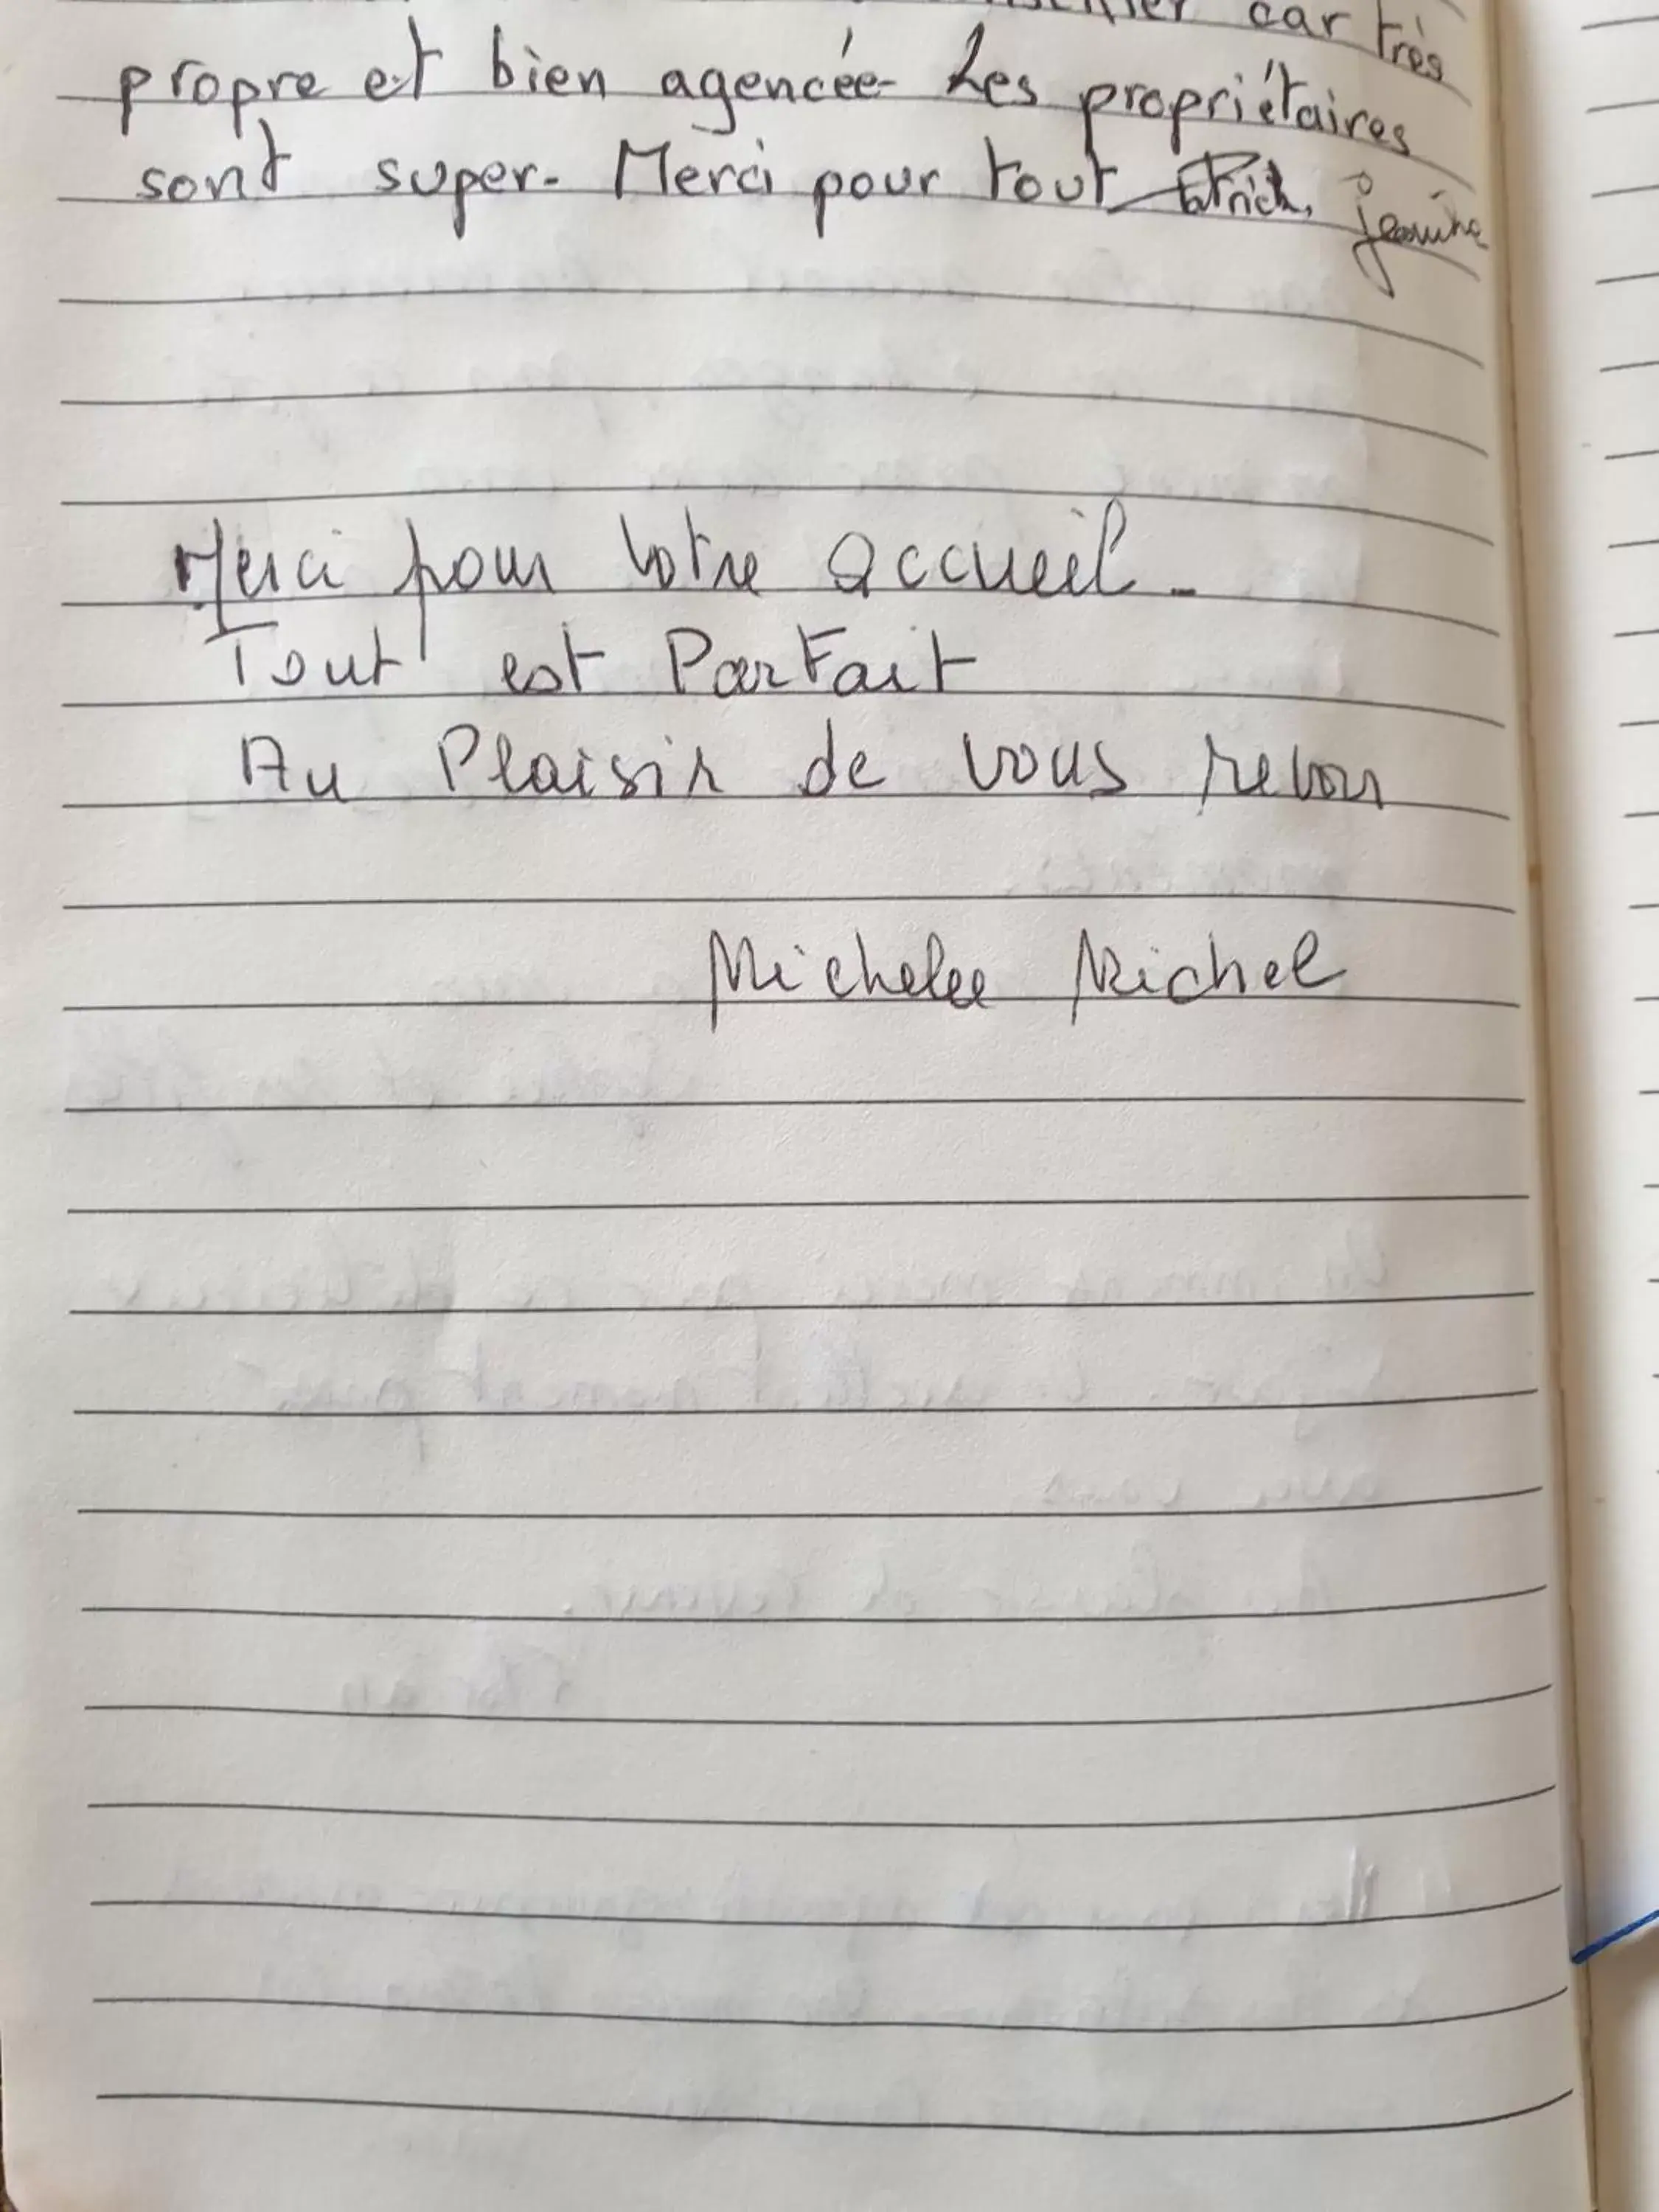 car très
propre et bien agencée- Les propriétaires
sont super- Merci pour tout Patrick, Jeanine
Merci pour votre accueil-
Tout est Parfait
Au Plaisir de vous revoir
Michelle Michel